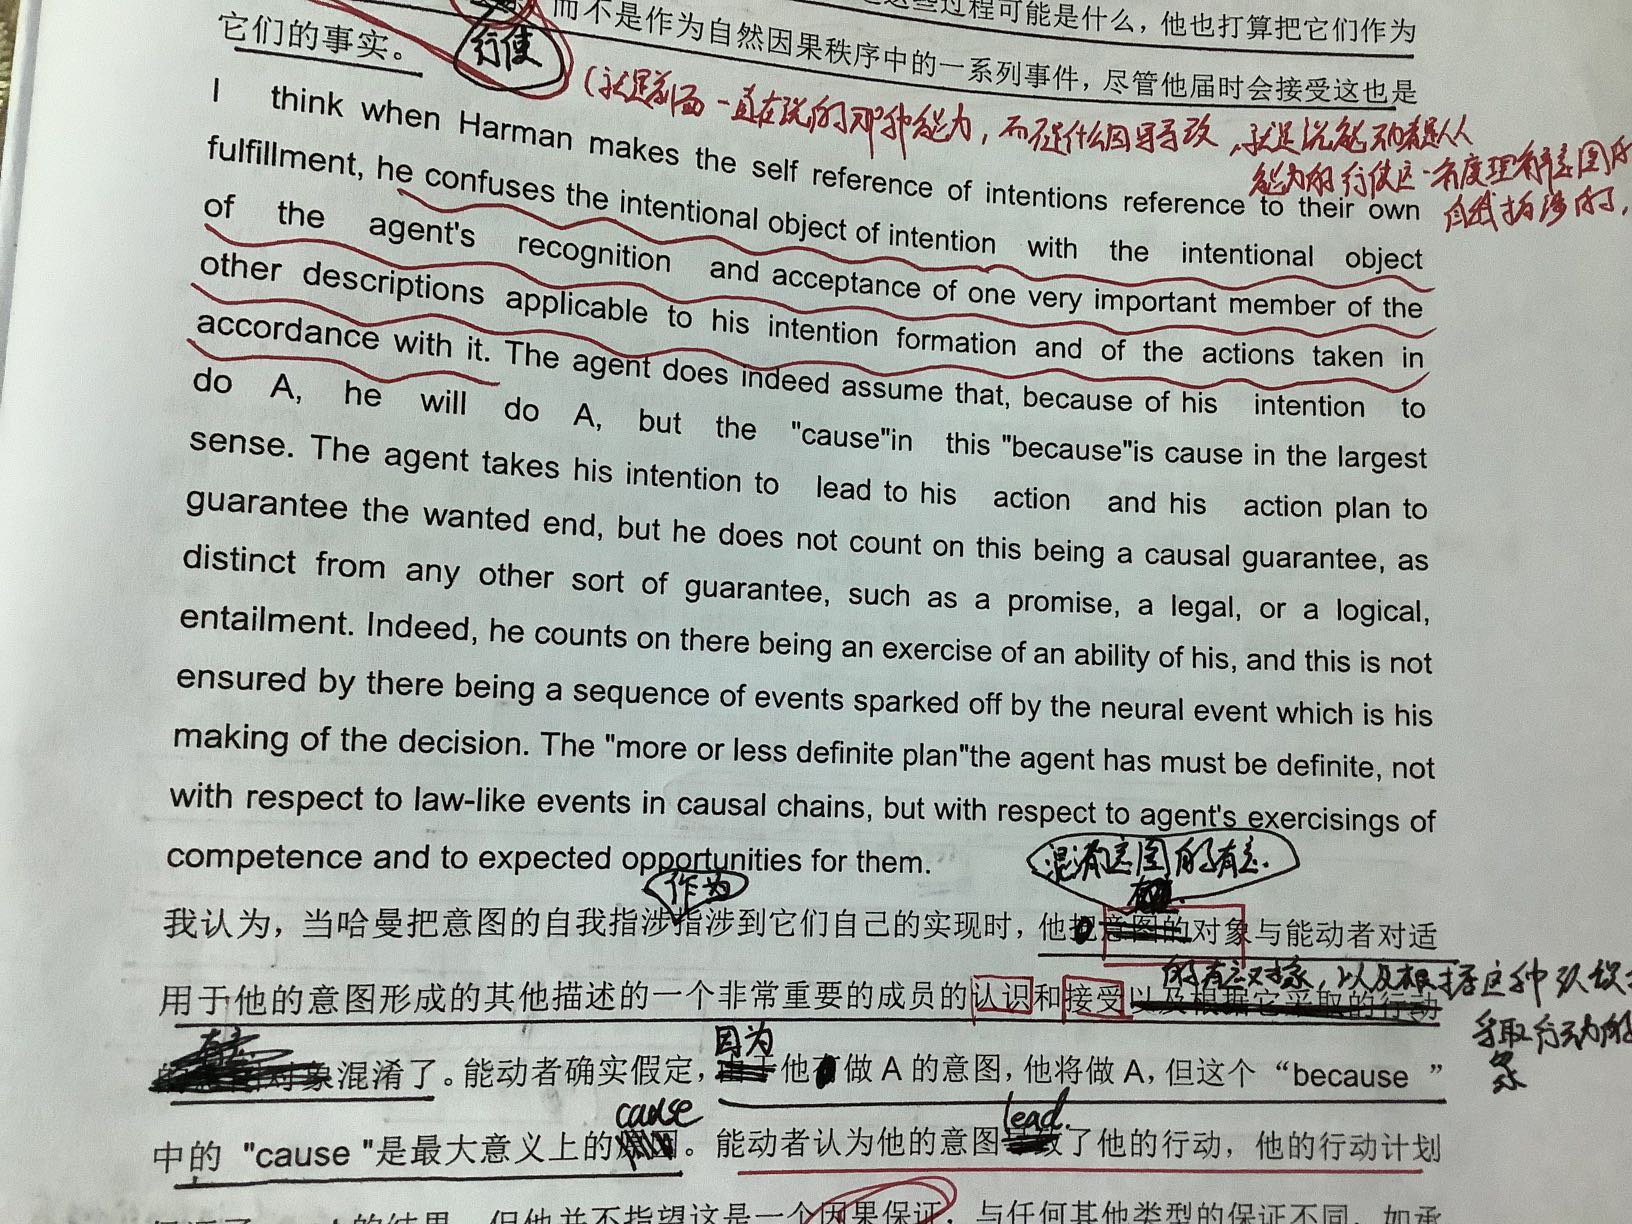 这些过程可能是什么，他也打算把它们作为
行使
而不是作为自然因果秩序中的一系列事件，尽管他届时会接受这也是
它们的事实。
(就是前面一直在说的那种能力，而不是什么因果导致，就是说能动者是从
能力的行使这一角度理解意图的
自我指涉的，
I think when Harman makes the self reference of intentions reference to their own
fulfillment, he confuses the intentional object of intention with the intentional object
of the agent's recognition and acceptance of one very important member of the
other descriptions applicable to his intention formation and of the actions taken in
accordance with it. The agent does indeed assume that, because of his intention to
do A, he will do A, but the "cause"in this "because"is cause in the largest
sense. The agent takes his intention to lead to his action and his action plan to
guarantee the wanted end, but he does not count on this being a causal guarantee, as
distinct from any other sort of guarantee, such as a promise, a legal, or a logical,
entailment. Indeed, he counts on there being an exercise of an ability of his, and this is not
ensured by there being a sequence of events sparked off by the neural event which is his
making of the decision. The "more or less definite plan"the agent has must be definite, not
with respect to law-like events in causal chains, but with respect to agent's exercisings of
competence and to expected opportunities for them.
作为
混淆意图的有意
我认为，当哈曼把意图的自我指涉指涉到它们自己的实现时，他把意图的对象与能动者对适
的有意对象，以及根据这种认识
用于他的意图形成的其他描述的一个非常重要的成员的认识和接受以及根据它采取的行动
采取行动的
因为
对象混淆了。能动者确实假定，由于他有做 A 的意图，他将做 A，但这个“because ”
cause
lead
中的 "cause "是最大意义上的原因。能动者认为他的意图导致了他的行动，他的行动计划
的结果，但他并不指望这是一个因果保证，与任何其他类型的保证不同，如承